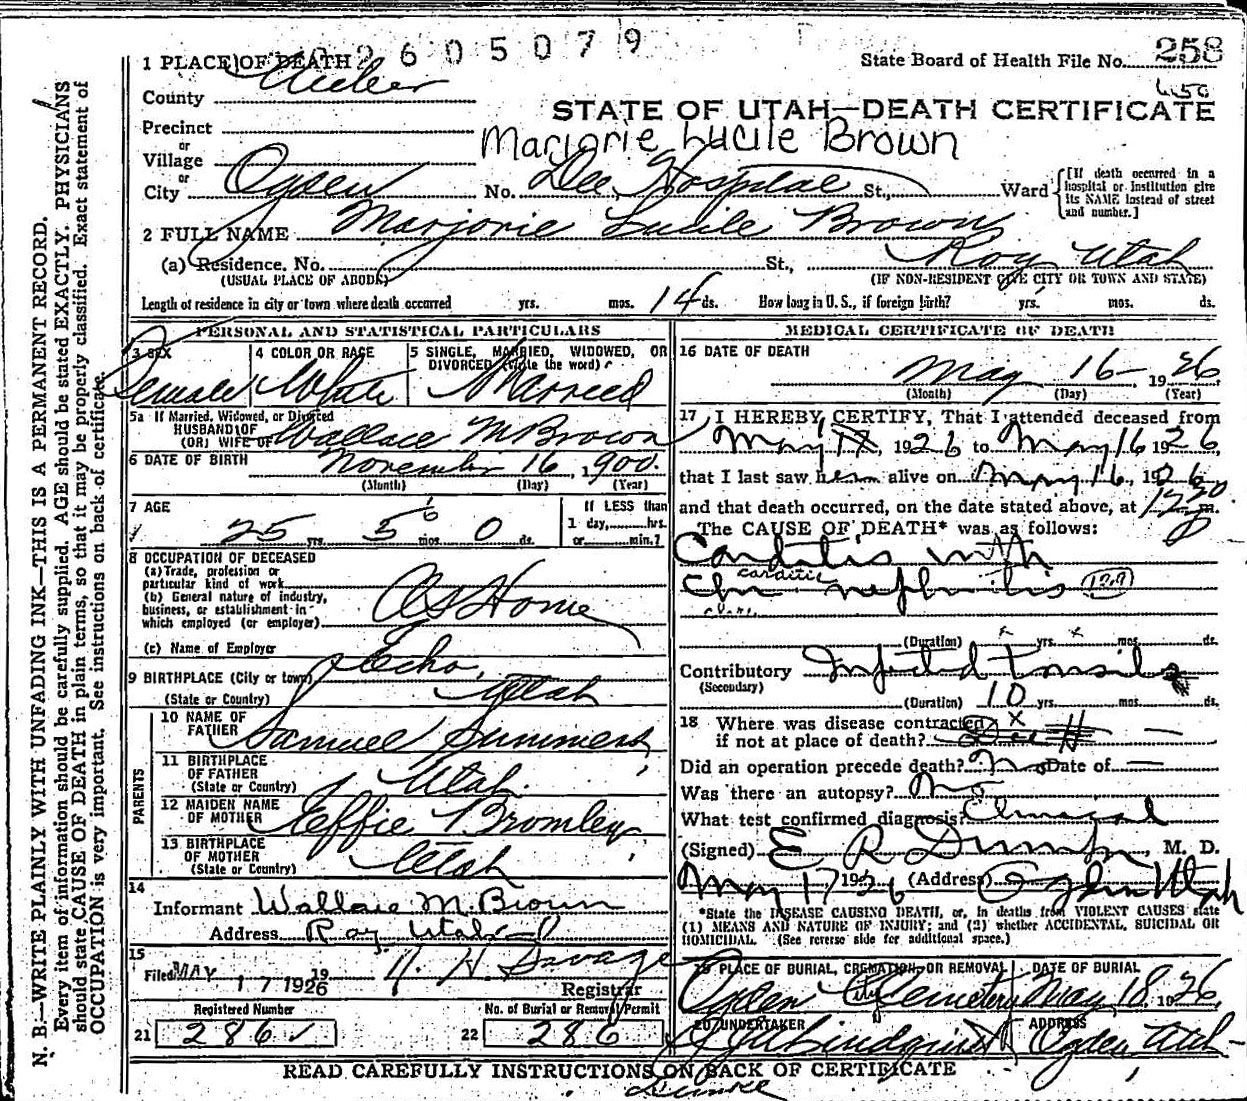 2605079
1 PLACE OF DEATH
State Board of Health File No. 258
County Weber
650
STATE OF UTAH—DEATH CERTIFICATE
Precinct
Marjorie Lucile Brown
or
Village
or
City Ogden No. Dee Hospital St., Ward [If death occurred in a hospital or institution give its NAME instead of street and number.]
2 FULL NAME Marjorie Lucile Brown
(a) Residence. No. St., Roy Utah
(USUAL PLACE OF ABODE) (IF NON-RESIDENT GIVE CITY OR TOWN AND STATE)
Length of residence in city or town where death occurred yrs. mos. 14 ds. How long in U. S., if foreign birth? yrs. mos. ds.
PERSONAL AND STATISTICAL PARTICULARS
3 SEX 4 COLOR OR RACE 5 SINGLE, MARRIED, WIDOWED, OR DIVORCED (write the word)
Female White Married
5a If Married, Widowed, or Divorced
HUSBAND OF
(OR) WIFE OF Wallace M Brown
6 DATE OF BIRTH November 16, 1900.
(Month) (Day) (Year)
7 AGE
25 yrs. 5 6 mos. 0 ds.
If LESS than
1 day, hrs.
or min.?
8 OCCUPATION OF DECEASED
(a) Trade, profession or
particular kind of work
(b) General nature of industry,
business, or establishment in
which employed (or employer) At Home
(c) Name of Employer
9 BIRTHPLACE (City or town) Echo,
(State or Country) Utah
PARENTS
10 NAME OF
FATHER Samuel Summers
11 BIRTHPLACE
OF FATHER
(State or Country) Utah
12 MAIDEN NAME
OF MOTHER Effie Bromley
13 BIRTHPLACE
OF MOTHER
(State or Country) Utah
14
Informant Wallace M. Brown
Address Roy Utah
15
Filed MAY 17 1926 19 Registrar
Registered Number No. of Burial or Removal Permit
21 286 22 286
MEDICAL CERTIFICATE OF DEATH
16 DATE OF DEATH
May 16— 1926
(Month) (Day) (Year)
17 I HEREBY CERTIFY, That I attended deceased from
May 1926 to May 16 1926,
that I last saw her alive on May 16, 1926
and that death occurred, on the date stated above, at m.
The CAUSE OF DEATH* was as follows:
Carditis with
carditis
Chr nephritis 129
(Duration) x yrs. x mos. ds.
Contributory Infected Tonsils
(Secondary)
(Duration) 10 yrs. mos. ds.
18 Where was disease contracted x
if not at place of death? Dee H —
Did an operation precede death? No Date of —
Was there an autopsy? No
What test confirmed diagnosis? Clinical
(Signed) E R Dumke, M. D.
May 17 1926 (Address) Ogden Utah
*State the DISEASE CAUSING DEATH, or, in deaths from VIOLENT CAUSES state
(1) MEANS AND NATURE OF INJURY; and (2) whether ACCIDENTAL, SUICIDAL OR
HOMICIDAL. (See reverse side for additional space.)
19 PLACE OF BURIAL, CREMATION, OR REMOVAL DATE OF BURIAL
Ogden City Cemetery May 18, 1926,
20 UNDERTAKER ADDRESS
Lindquist Ogden, Utah—
READ CAREFULLY INSTRUCTIONS ON BACK OF CERTIFICATE
Dumke
N. B.—WRITE PLAINLY WITH UNFADING INK—THIS IS A PERMANENT RECORD.
Every item of information should be carefully supplied. AGE should be stated EXACTLY. PHYSICIANS
should state CAUSE OF DEATH in plain terms, so that it may be properly classified. Exact statement of
OCCUPATION is very important. See instructions on back of certificate.